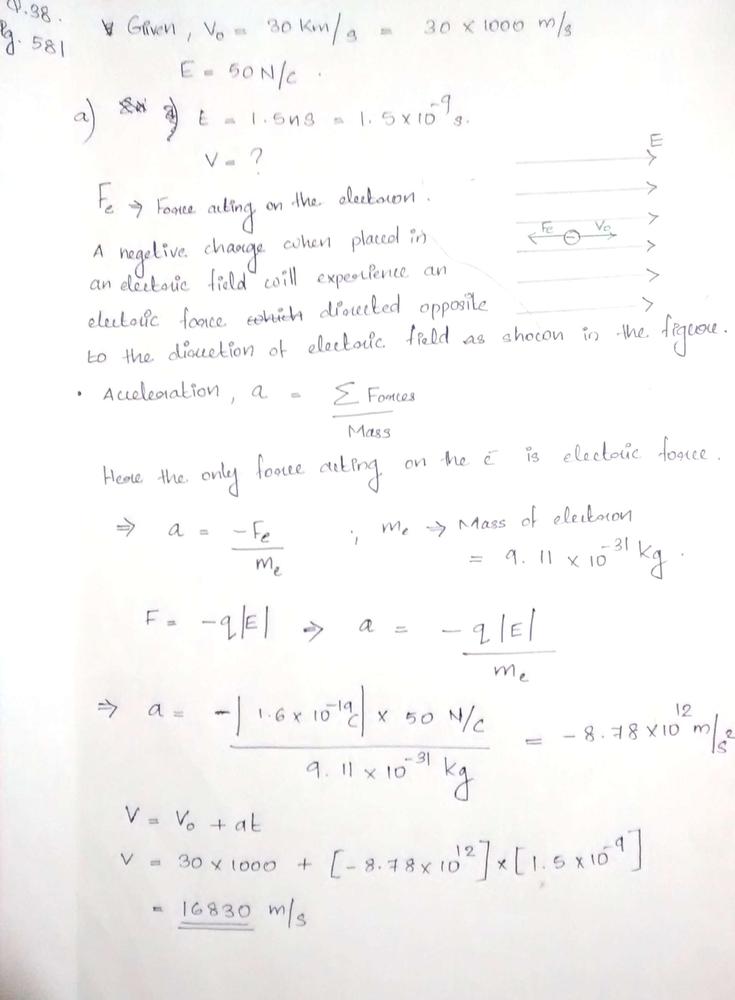 Q.38.
Pg. 581
Given, V₀ = 30 Km/s = 30 × 1000 m/s
E = 50 N/C .
a) t = 1.5ns = 1.5×10⁻⁹ s.
V = ?
E
Fe V₀
Fe → Force acting on the electron.
A negetive charge when placed in
an electric field will experience an
electric force which directed opposite
to the direction of electric field as shown in the figure.
• Acceleration, a = Σ Forces / Mass
Here the only force acting on the ē is electric force.
⇒ a = -Fe / me ; me → Mass of electron
= 9.11 × 10⁻³¹ kg.
F = -q|E| ⇒ a = -q|E| / me
⇒ a = -|1.6 × 10⁻¹⁹ C| × 50 N/C / 9.11 × 10⁻³¹ kg = -8.78×10¹² m/s²
V = V₀ + at
V = 30 × 1000 + [-8.78×10¹²] × [1.5 ×10⁻⁹]
= 16830 m/s